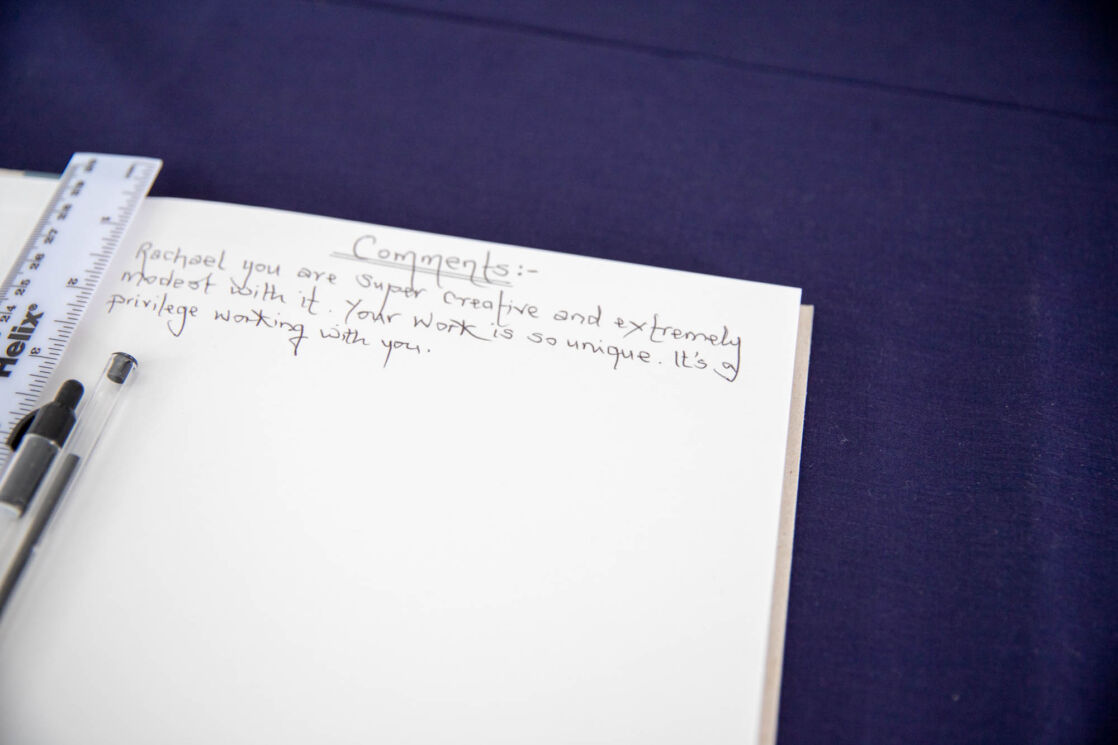 Comments:-
Rachael you are super creative and extremely
modest with it. Your work is so unique. It's a
privilege working with you.
Helix®
29
28
27
26
25
24
1
2
3